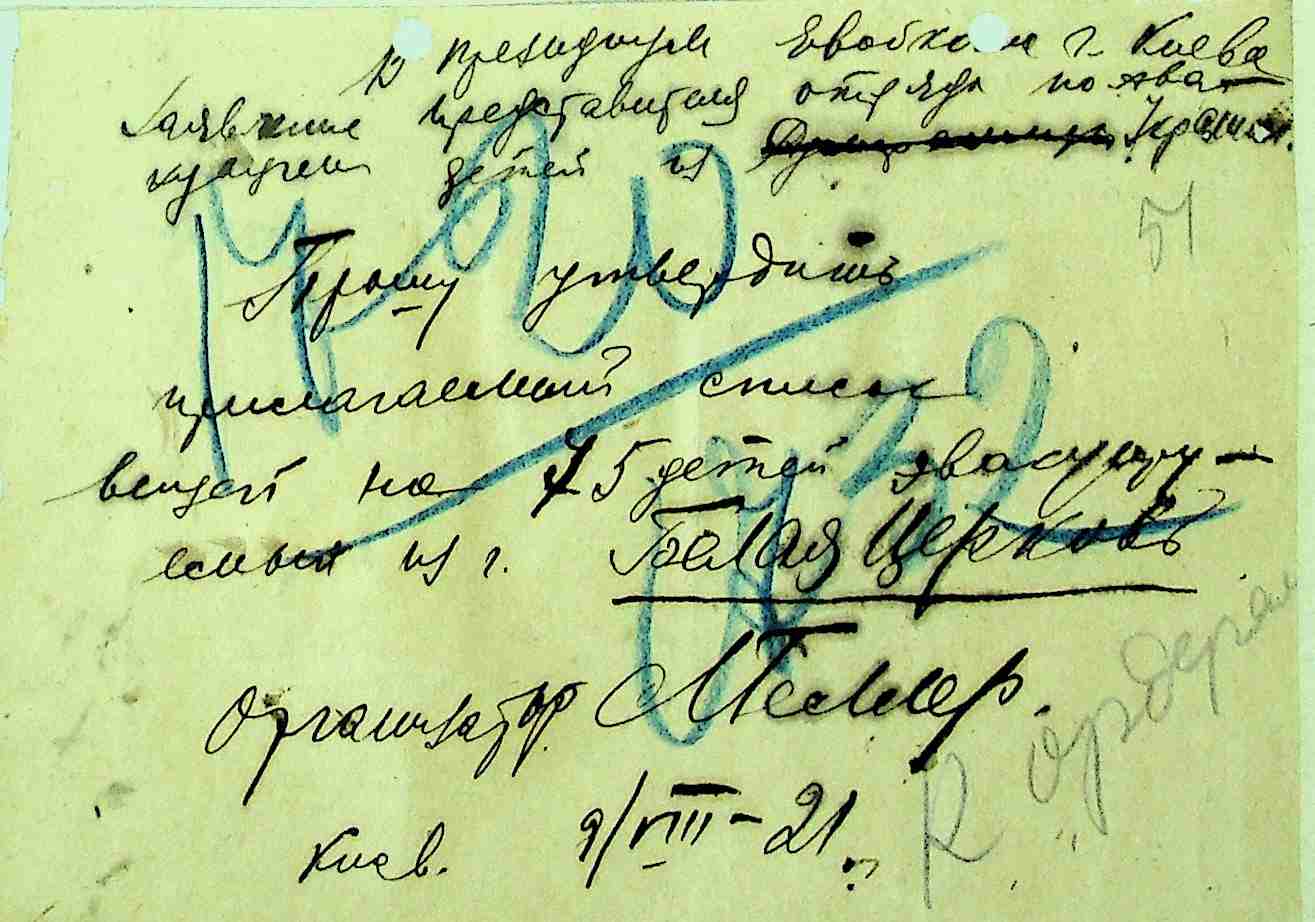 в президиум Евобкома г. Киева
Заявление представителя отряда по эва-
куации детей из Украины.
51
Прошу утвердить
прилагаемый список
вещей на 75 детей эвакуиру-
емых из г. Белая Церковь
Организатор
Киев. 9/VIII-21.
К ордерам